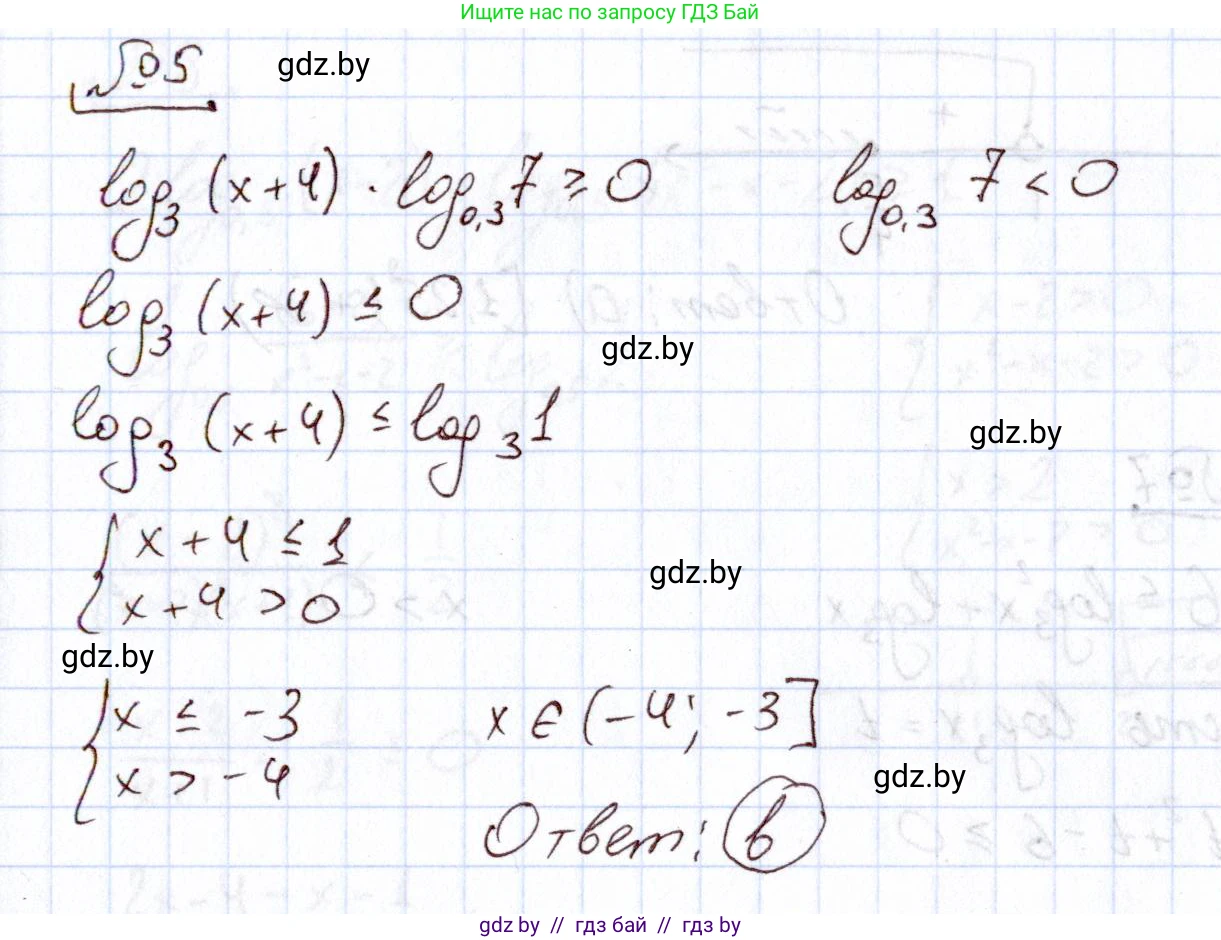 Ищите нас по запросу ГДЗ Бай
№5
gdz.by
log₃ (x+4) · log₀,₃ 7 ≥ 0
log₀,₃ 7 < 0
log₃ (x+4) ≤ 0
gdz.by
log₃ (x+4) ≤ log₃ 1
gdz.by
{ x + 4 ≤ 1
x + 4 > 0
gdz.by
gdz.by
{ x ≤ -3
x > -4
x ∈ (-4; -3]
gdz.by
Ответ: в
gdz.by // гдз бай // гдз by